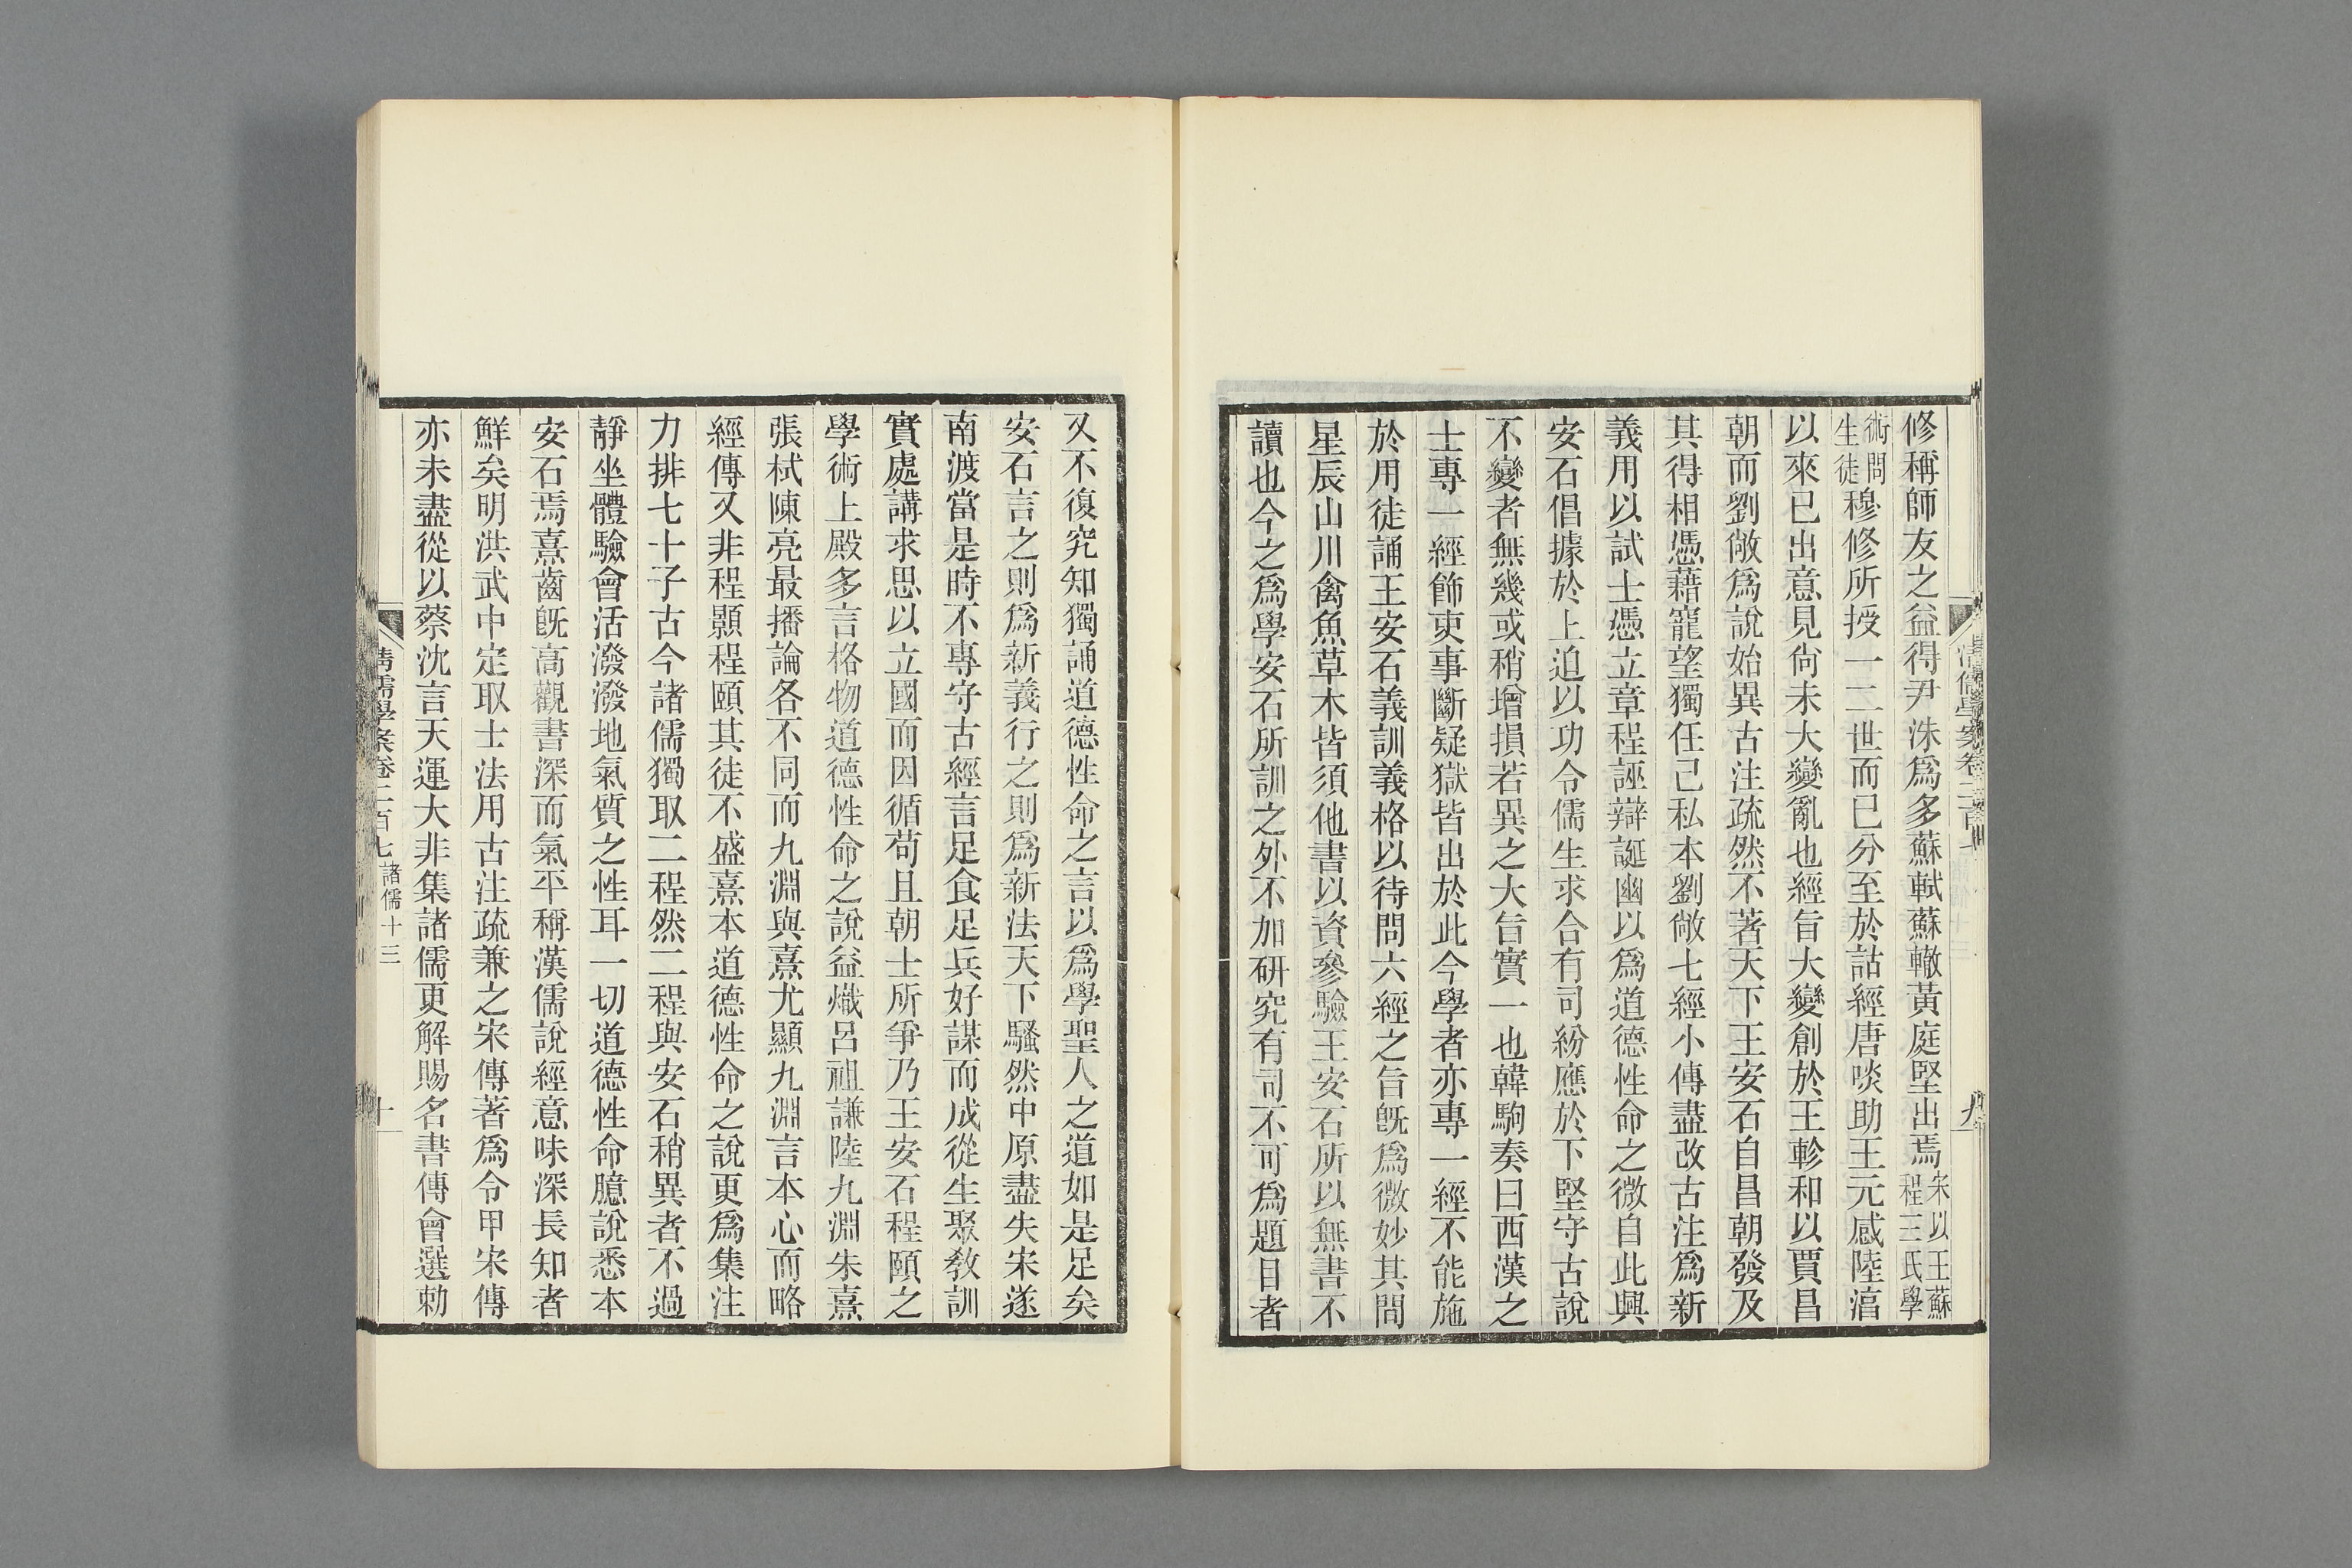 修稱師友之益得尹洙爲多蘇軾蘇轍黃庭堅出焉宋以王蘇程三氏學
術問生徒穆修所授一二世而已分至於詁經唐啖助王元感陸淳
以來已出意見尙未大變亂也經旨大變創於王軫和以賈昌
朝而劉敞爲說始異古注疏然不著天下王安石自昌朝發及
其得相憑藉寵望獨任己私本劉敞七經小傳盡改古注爲新
義用以試士憑立章程誣辯誕幽以爲道德性命之微自此興
安石倡據於上迫以功令儒生求合有司紛應於下堅守古說
不變者無幾或稍增損若異之大旨實一也韓駒奏曰西漢之
士專一經飾吏事斷疑獄皆出於此今學者亦專一經不能施
於用徒誦王安石義訓義格以待問六經之旨旣爲微妙其間
星辰山川禽魚草木皆須他書以資參驗王安石所以無書不
讀也今之爲學安石所訓之外不加硏究有司不可爲題目者
九
又不復究知獨誦道德性命之言以爲學聖人之道如是足矣
安石言之則爲新義行之則爲新法天下騷然中原盡失宋遂
南渡當是時不專守古經言足食足兵好謀而成從生聚敎訓
實處講求思以立國而因循苟且朝士所爭乃王安石程頤之
學術上殿多言格物道德性命之說益熾呂祖謙陸九淵朱熹
張栻陳亮最播論各不同而九淵與熹尤顯九淵言本心而略
經傳又非程顥程頤其徒不盛熹本道德性命之說更爲集注
力排七十子古今諸儒獨取二程然二程與安石稍異者不過
靜坐體驗會活潑潑地氣質之性耳一切道德性命臆說悉本
安石焉熹齒旣高觀書深而氣平稱漢儒說經意味深長知者
鮮矣明洪武中定取士法用古注疏兼之宋傳著爲令甲宋傳
亦未盡從以蔡沈言天運大非集諸儒更解賜名書傳會選勅
淸儒學案卷二百七 諸儒十三
十